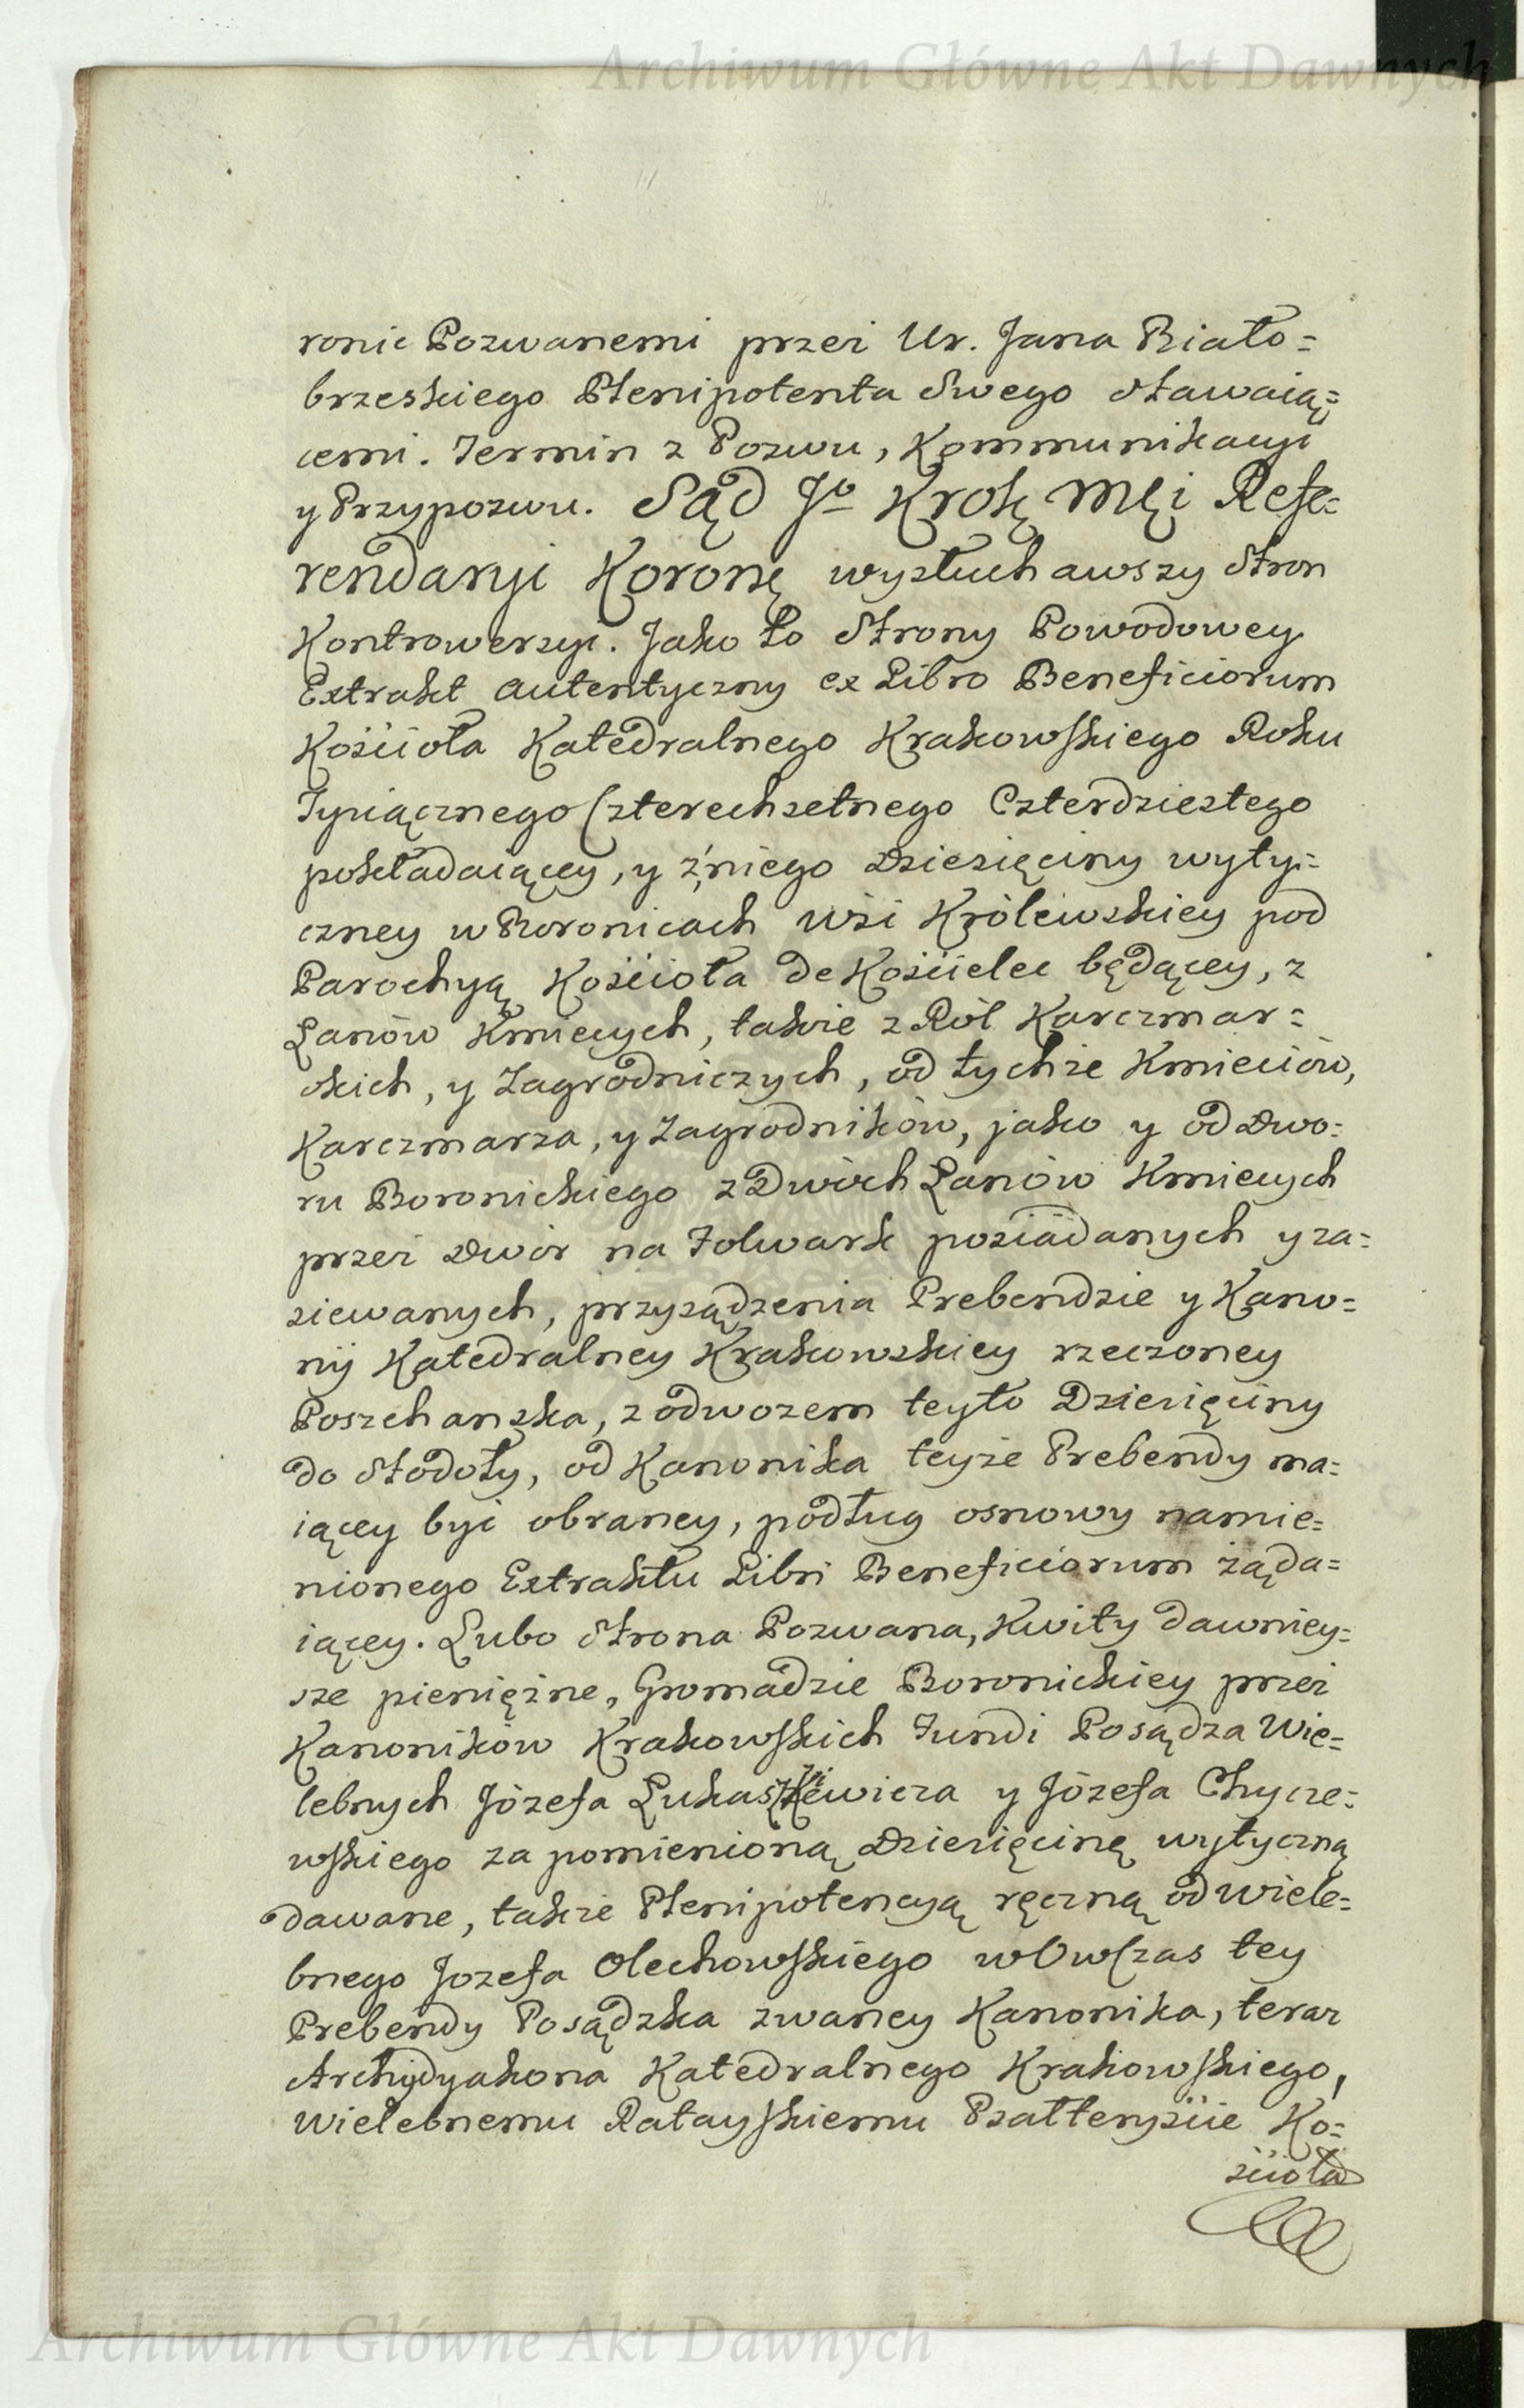 Archiwum Główne Akt Dawnych
ronic Pozwanemi przez Ur. Jana Biało=
brzeskiego Plenipotenta Swego stawaią=
cemi. Termin z Pozwu, Kommunikacyi
y Przypozwu. Sąd Jº Krolę Męi Refe=
rendaryi Koronę wysłuchawszy stron
Kontrowersyi. Jako to Strony Powodowey
Extrakt autentyczny ex Libro Beneficiorum
Kościoła Katedralnego Krakowskiego Roku
Tysiącznego Czterechsetnego Czterdziestego
pokładaiącey, y z niego Dziesięciny wyty=
czney w Boronicach Wsi Królewskiey pod
Parochyą Kościoła de Kościelec będącey, z
Łanów Kmiecych, także z Ról Karczmar=
skich, y Zagrodniczych, od tychże Kmieciów,
Karczmarza, y Zagrodników, jako y od Dwo=
ru Boronickiego z Dwóch Łanów Kmiecych
przez Dwór na Folwark posiadanych y za=
siewanych, przysądzenia Prebendzie y Kano=
nij Katedralney Krakowskiey rzeczoney
Poszchanska, z odwozem teyto Dziesięciny
do Stodoły, od Kanonika teyże Prebendy ma=
iącey być obraney, podług osnowy namie=
nionego Extraktu Libri Beneficiorum żąda=
iącey. Lubo Strona Pozwana, Kwity dawniey=
sze pienięzne, Gromadzie Boronickiey przez
Kanoników Krakowskich Fundi Posądza Wie=
lebnych Józefa Łukaszkiewicza y Józefa Chycze=
wskiego za pomienioną Dziesięcinę wytyczną
dawane, także Plenipotencyą ręczną od Wiele=
bnego Jozefa Olechowskiego w Owczas tey
Prebendy Posądzka zwaney Kanonika, teraz
Archydyakona Katedralnego Krakowskiego,
Wielebnemu Ratayskiemu Psałteryście Ko=
ścioła
Archiwum Główne Akt Dawnych